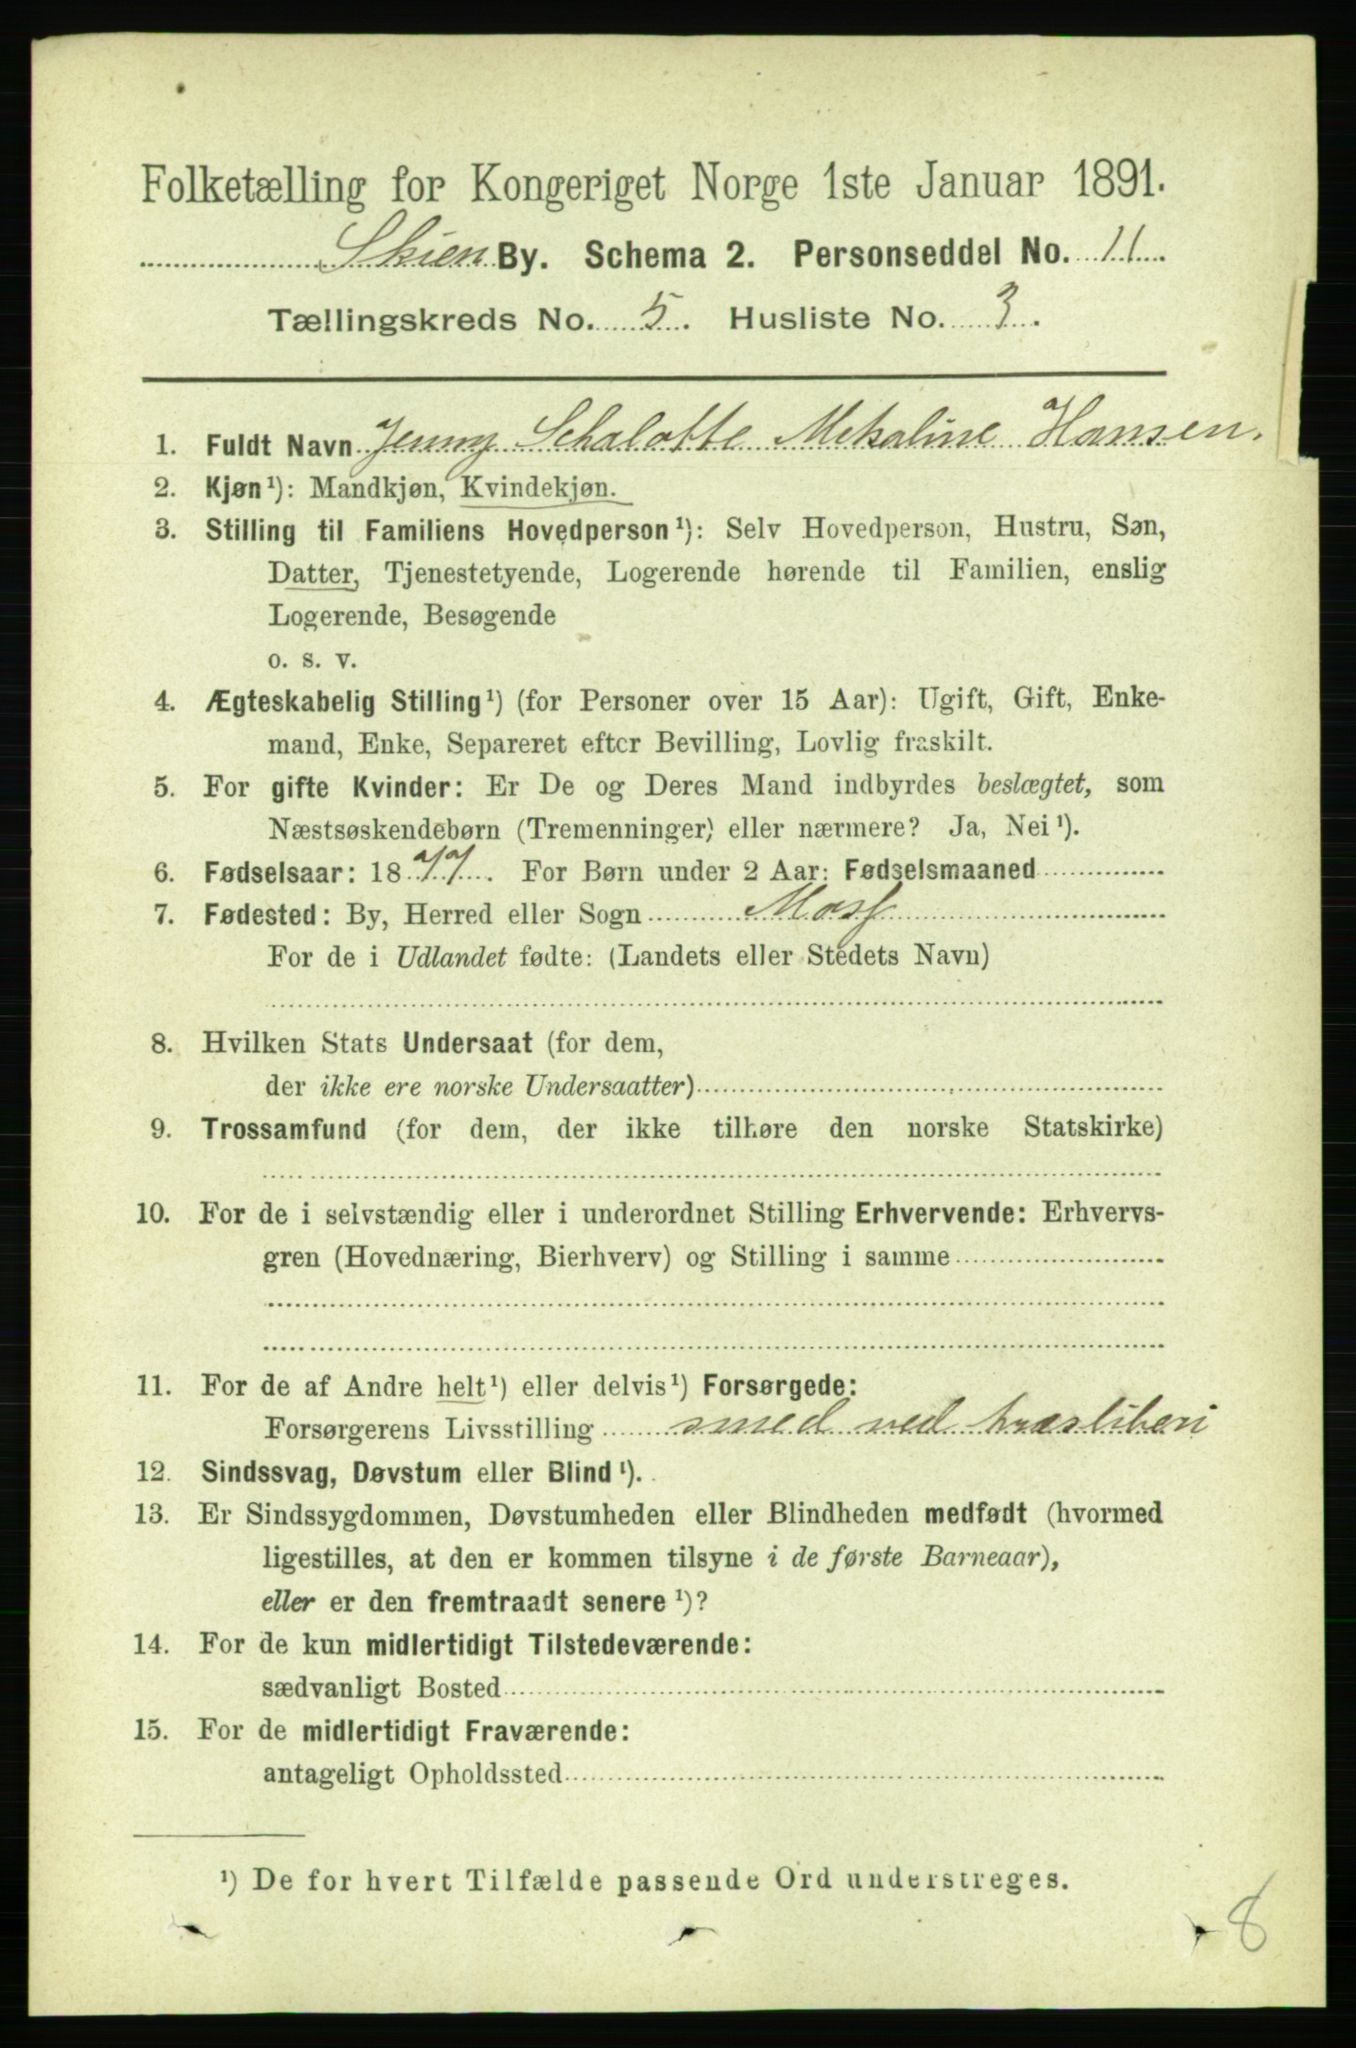 Folketælling for Kongeriget Norge 1ste Januar 1891.
Skien By. Schema 2. Personseddel No. 11.
Tællingskreds No. 5. Husliste No. 3.
1. Fuldt Navn Jenny Schalotte Mekaline Hansen.
2. Kjøn¹): Mandkjøn, Kvindekjøn.
3. Stilling til Familiens Hovedperson¹): Selv Hovedperson, Hustru, Søn,
Datter, Tjenestetyende, Logerende hørende til Familien, enslig
Logerende, Besøgende
o. s. v.
4. Ægteskabelig Stilling¹) (for Personer over 15 Aar): Ugift, Gift, Enke-
mand, Enke, Separeret efter Bevilling, Lovlig fraskilt.
5. For gifte Kvinder: Er De og Deres Mand indbyrdes beslægtet, som
Næstsøskendebørn (Tremenninger) eller nærmere? Ja, Nei¹).
6. Fødselsaar: 1877. For Børn under 2 Aar: Fødselsmaaned
7. Fødested: By, Herred eller Sogn Moss
For de i Udlandet fødte: (Landets eller Stedets Navn)
8. Hvilken Stats Undersaat (for dem,
der ikke ere norske Undersaatter)
9. Trossamfund (for dem, der ikke tilhøre den norske Statskirke)
10. For de i selvstændig eller i underordnet Stilling Erhvervende: Erhvervs-
gren (Hovednæring, Bierhverv) og Stilling i samme
11. For de af Andre helt¹) eller delvis¹) Forsørgede:
Forsørgerens Livsstilling smed ved træsliberi
12. Sindssvag, Døvstum eller Blind¹).
13. Er Sindssygdommen, Døvstumheden eller Blindheden medfødt (hvormed
ligestilles, at den er kommen tilsyne i de første Barneaar),
eller er den fremtraadt senere¹)?
14. For de kun midlertidigt Tilstedeværende:
sædvanligt Bosted
15. For de midlertidigt Fraværende:
antageligt Opholdssted
¹) De for hvert Tilfælde passende Ord understreges.
8